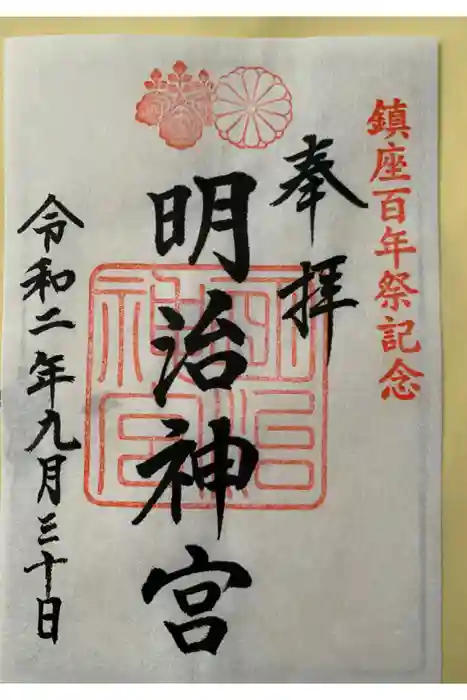 鎮座百年祭記念
奉拝
明治神宮
明治神宮
令和二年九月三十日